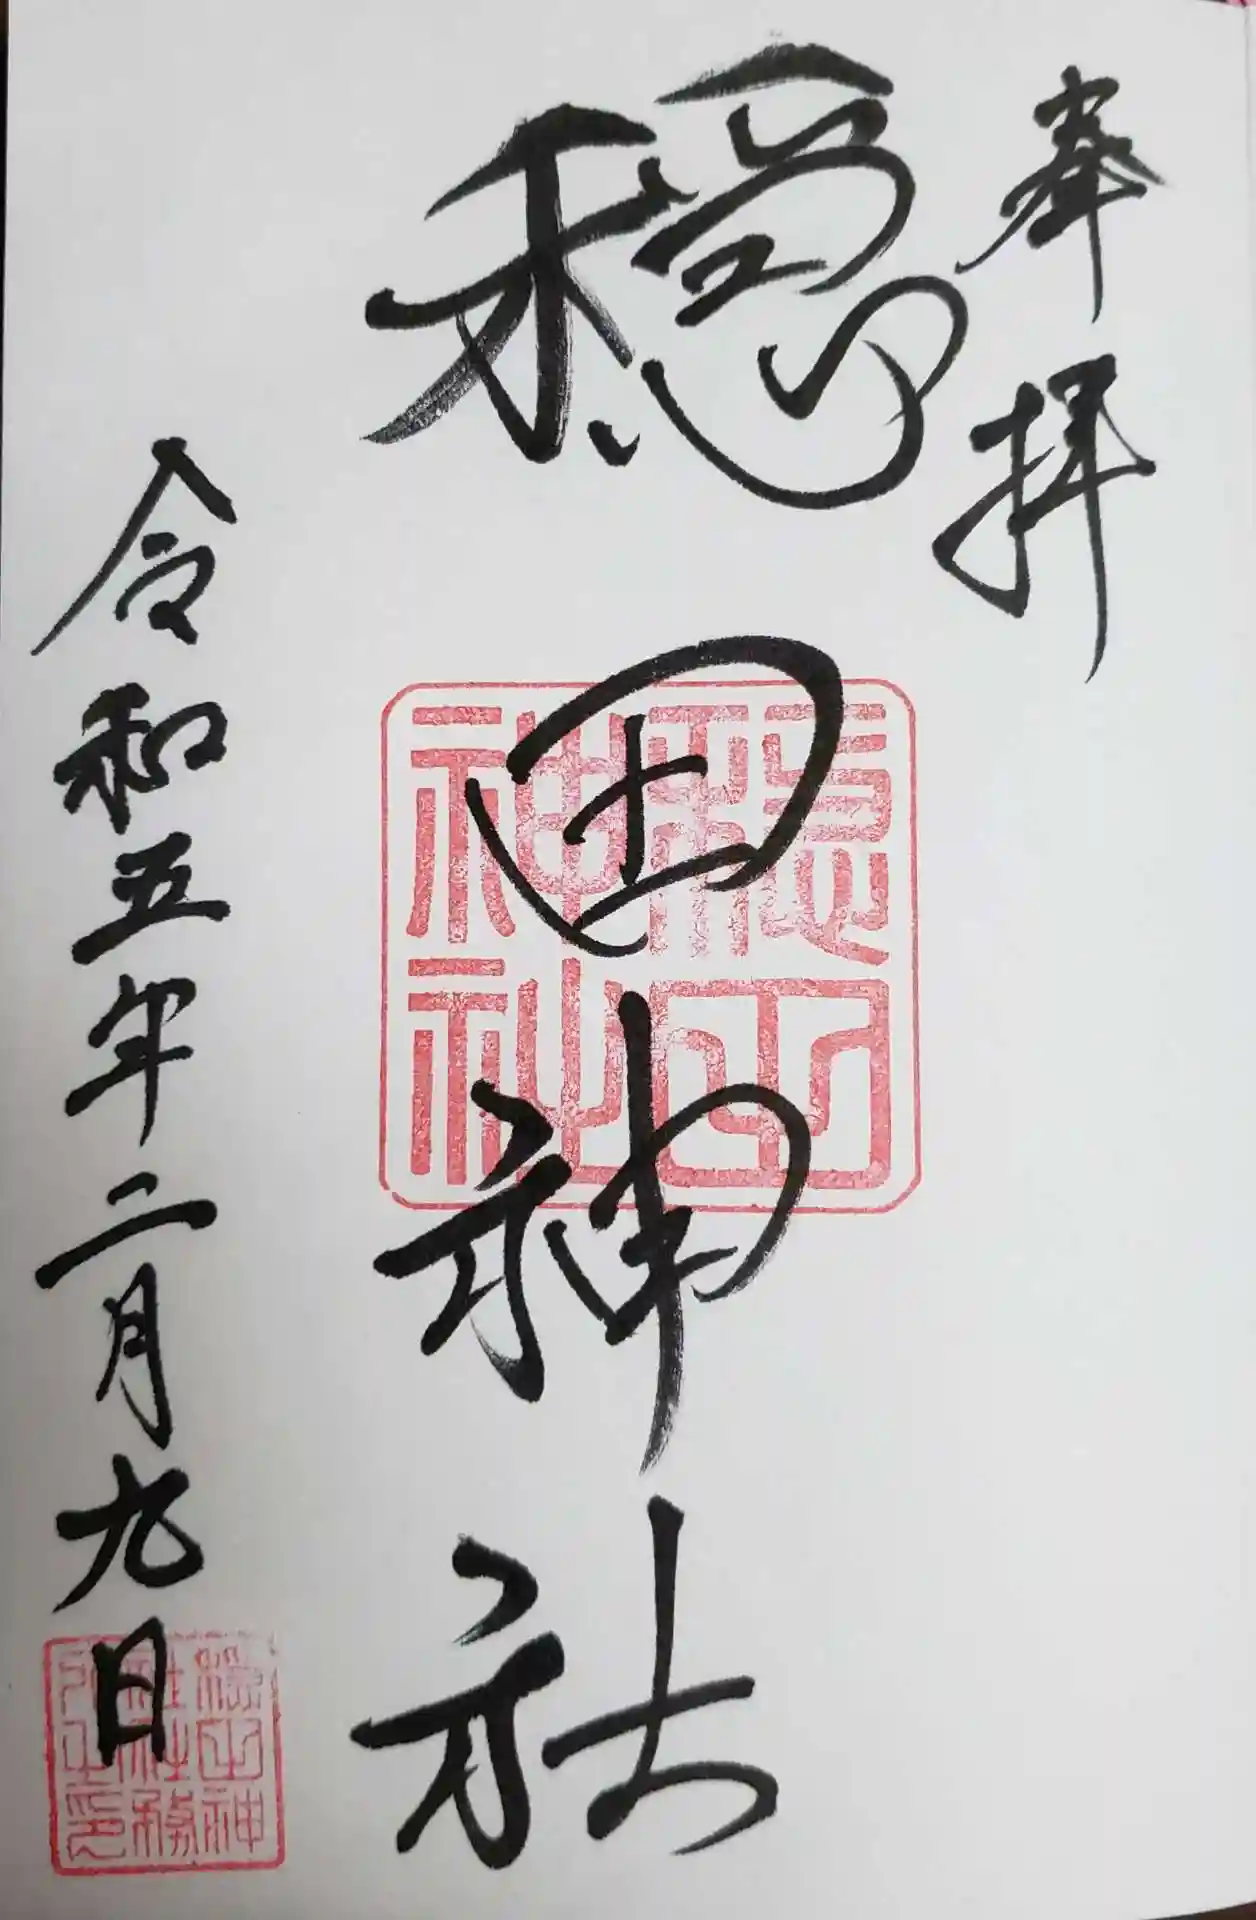 奉拝
穏田神社
穏田
神社
令和五年二月九日
穏田神
社社務
所之印